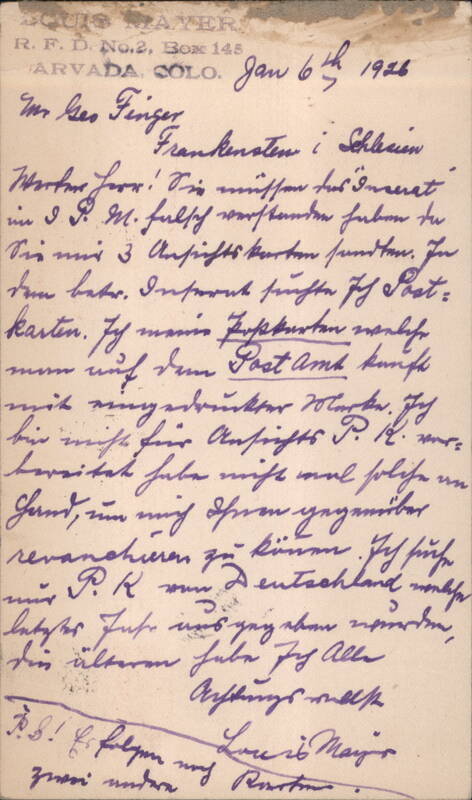 LOUIS MAYER
R. F. D. No. 2, Box 145
ARVADA, COLO.
Jan 6th 1926
Mr Geo Finger
Frankenstein i Schlesien
Werter Herr! Sie müssen das "Inserat"
im I P. M. falsch verstanden haben da
Sie mir 3 Ansichtskarten sandten. In
dem betr. Inserat suchte Ich Post=
karten. Ich meine Postkarten welche
man auf dem Post Amt kauft
mit eingedruckter Marke. Ich
bin nicht für Ansichts P. K. vor=
bereitet habe nicht mal solche an
Hand, um mich Ihnen gegenüber
revanchieren zu könen. Ich suche
nur P. K von Deutschland welche
letztes Jahr ausgegeben wurden,
die älteren habe Ich Alle
Achtungsvollst
Louis Mayer
P. S! Es folgen noch
zwei andere Karten.